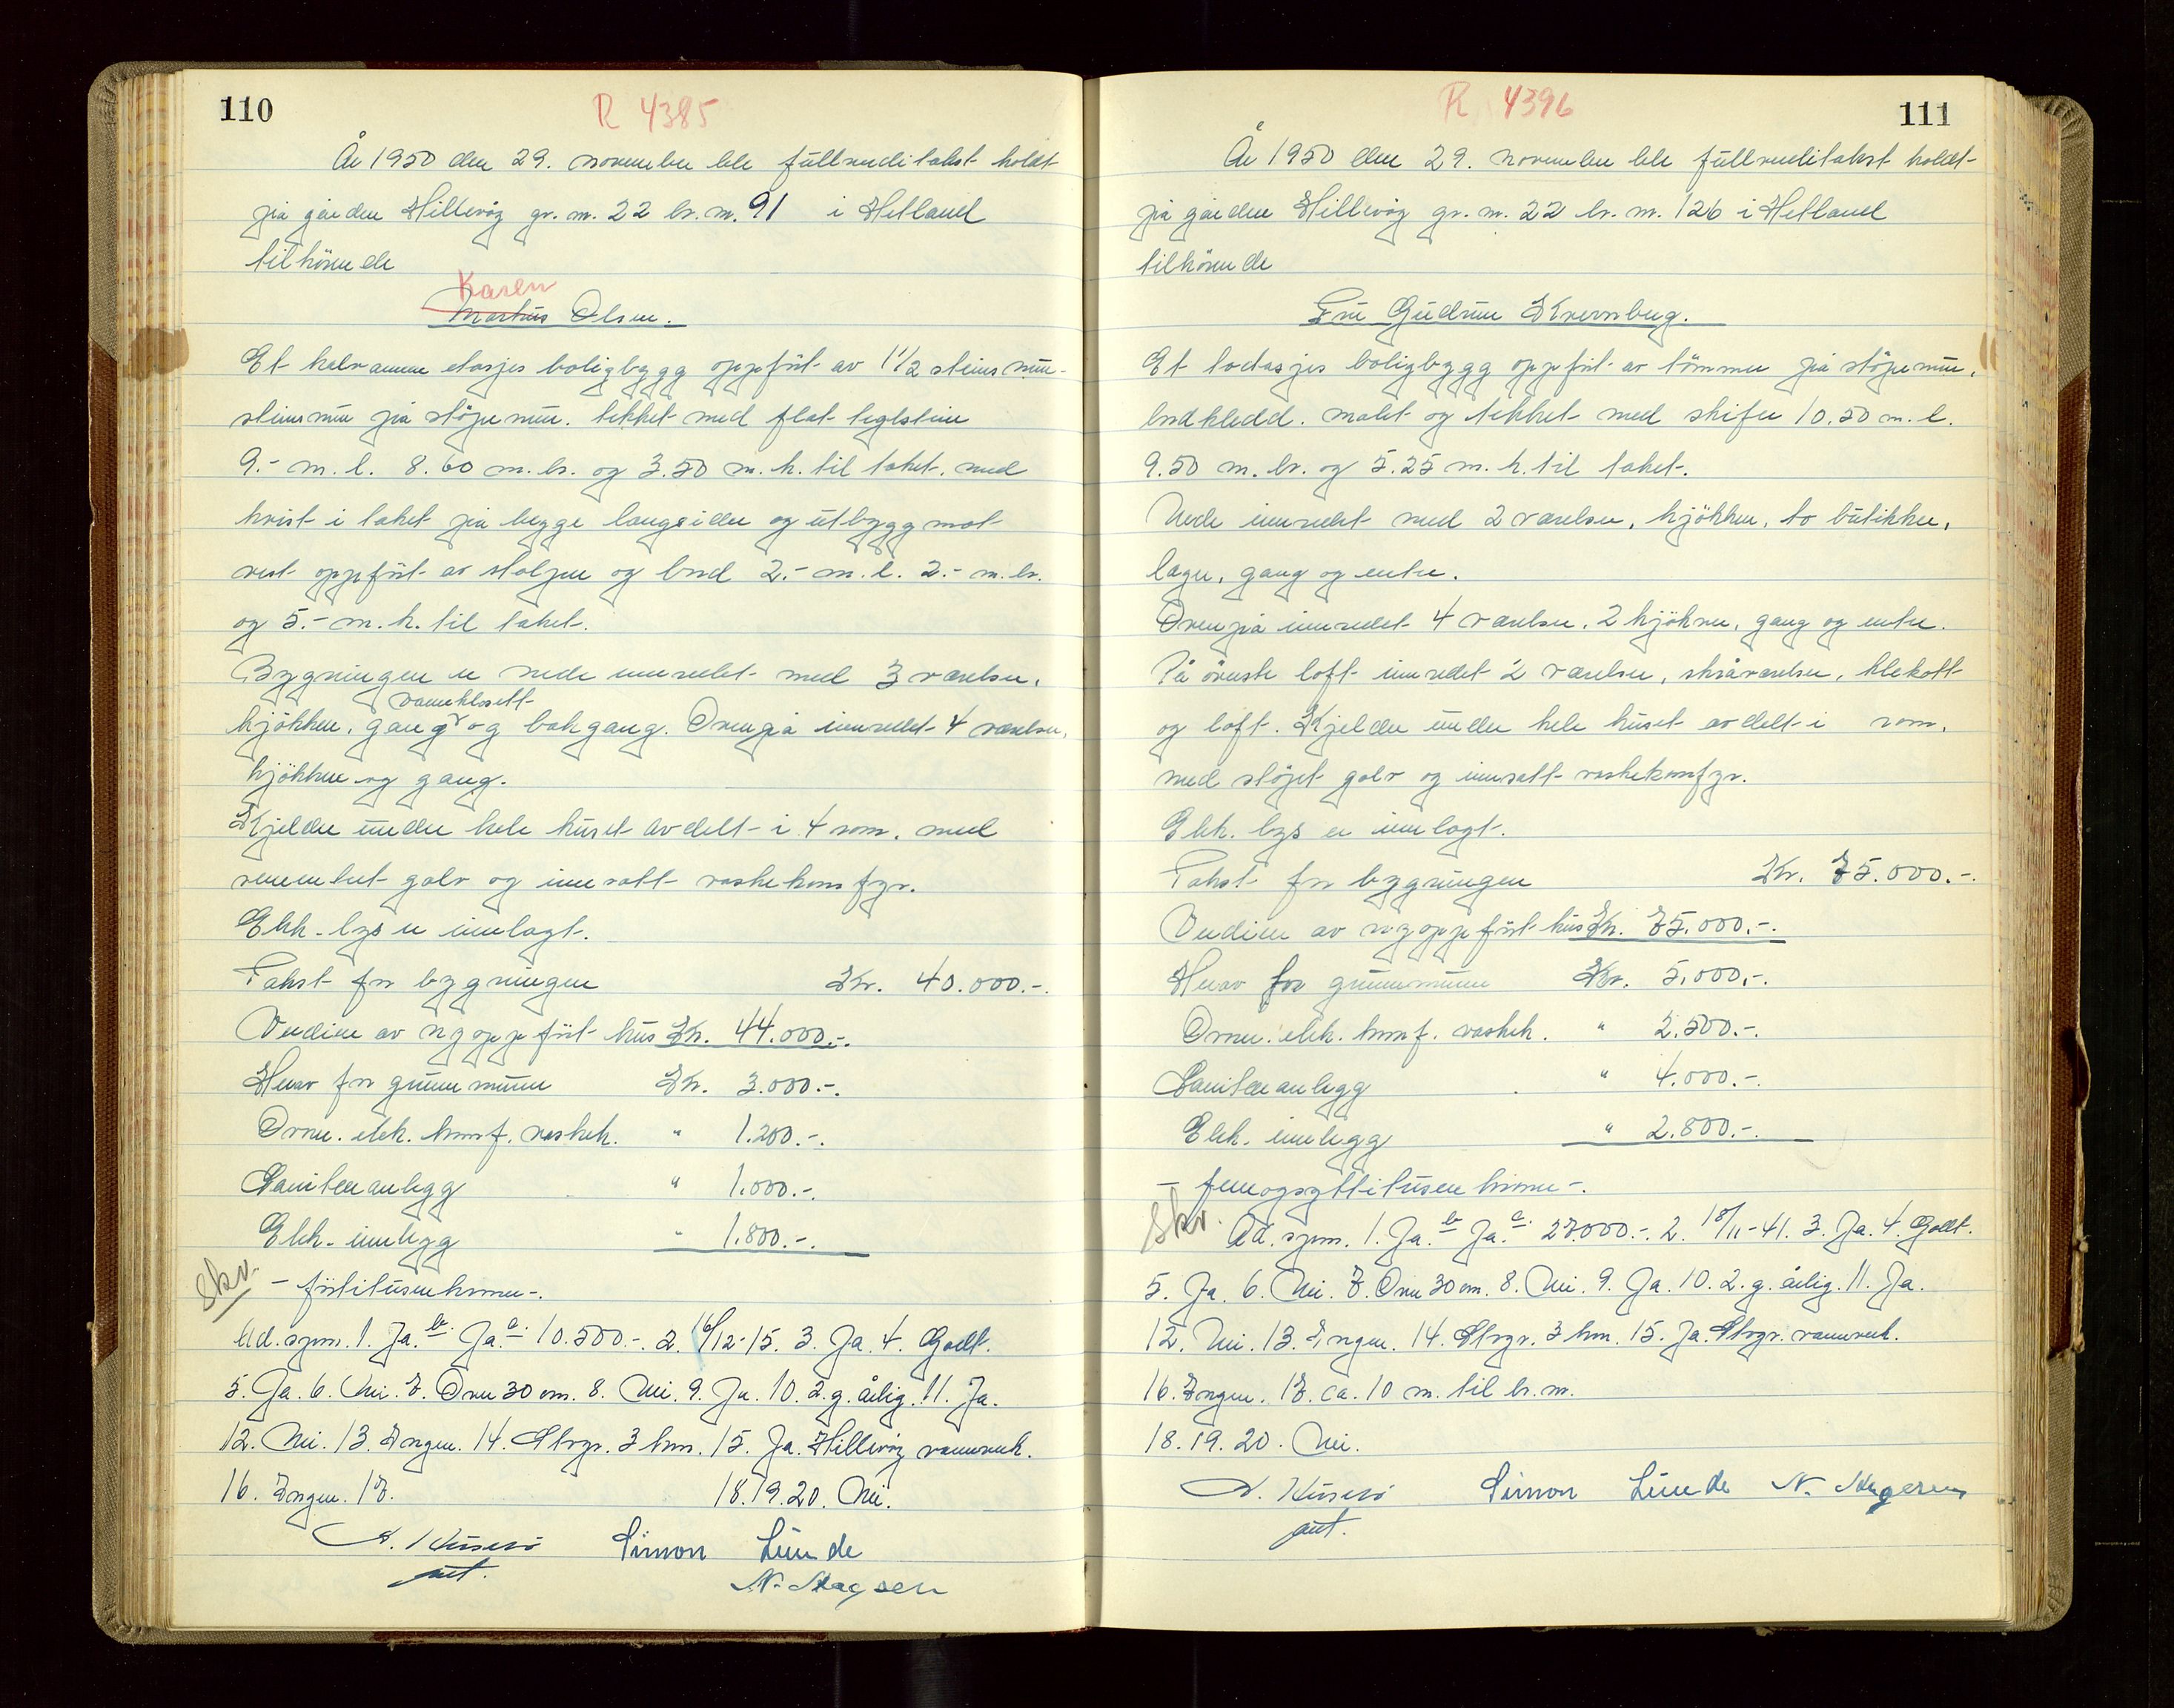 110
R 4385
År 1950 den 29. november ble fullverditakst holdt
på gården Hillevåg gr. nr. 22 br. nr. 91 i Hetland
tilhörende
Karen
Markus Olsen.
Et halvannen etasjes boligbygg oppfört av 1 1/2 steins mur-
steinsmur på stöpemur. tekket med flat teglstein
9.- m. l. 8.60 m. br. og 3.50 m. h. til taket. med
kvist i taket på begge langsider og utbygg mot
vest oppfört av stolper og bord 2.- m. l. 2.- m. br.
og 5.- m. h. til taket.
Bygningen er nede innredet med 3 værelser,
vannklosett
kjökken, gang og bakgang. Ovenpå innredet 4 værelser,
kjökken og gang.
Kjelder under hele huset avdelt i 4 rom. med
sementert golv og innsatt vaskekomfyr.
Elek. lys er innlagt.
Takst for bygningen Kr. 40.000.-.
Verdien av nyoppfört hus Kr. 44.000.-.
Herav for grunnmuren Kr. 3.000.-.
Ovner. elek. komf. vaskek. " 1.200.-.
Sanitæranlegg " 1.000.-.
Elek. innlegg " 1.800.-.
Skv.
- förtitusenkroner-.
Ad. spm. 1. Ja. b. Ja c. 10.500.-. 2. 16/12-15. 3. Ja. 4. Godt.
5. Ja. 6. Nei. 7. Over 30 cm. 8. Nei. 9. Ja. 10. 2. g. årlig. 11. Ja.
12. Nei. 13. Ingen. 14. Stvgr. 3 km. 15. Ja. Hillevåg vannverk.
16. Ingen. 17. 18. 19. 20. Nei.
Simon Lunde
N. Magsen
111
R 4396
År 1950 den 29. november ble fullverditakst holdt
på gården Hillevåg gr. nr. 22 br. nr. 126 i Hetland
tilhörende
Fru Gudrun Kvernberg.
Et toetasjes boligbygg oppfört av tömmer på stöpemur.
bordkledd. malet og tekket med skifer 10.50 m. l.
9.50 m. br. og 5.25 m. h. til taket.
Nede innredet med 2 værelser, kjökken, to butikker,
lager, gang og entre.
Ovenpå innredet 4 værelser. 2 kjökner, gang og entre.
På överste loft innredet 2 værelser, skråværelser, klekott
og loft. Kjelder under hele huset avdelt i rom.
med stöpt golv og innsatt vaskekomfyr.
Elek. lys er innlagt.
Takst for bygningen Kr. 75.000.-.
Verdien av nyoppfört hus Kr. 75.000.-.
Herav for grunnmuren Kr. 5.000.-.
Ovner. elek. komf. vaskek. " 2.500.-.
Sanitæranlegg " 4.000.-.
Elek. innlegg " 2.800.-.
- femogsyttitusenkroner-.
Skv.
Ad. spm. 1. Ja. b Ja. c. 27.000.-. 2. 18/11-41. 3. Ja. 4. Godt.
5. Ja. 6. Nei. 7. Over 30 cm. 8. Nei. 9. Ja. 10. 2. g. årlig. 11. Ja.
12. Nei. 13. Ingen. 14. Stvgr. 3 km. 15. Ja. Stvgr. vannverk.
16. Ingen. 17. ca. 10 m. til br. nr.
18. 19. 20. Nei.
Simon Lunde